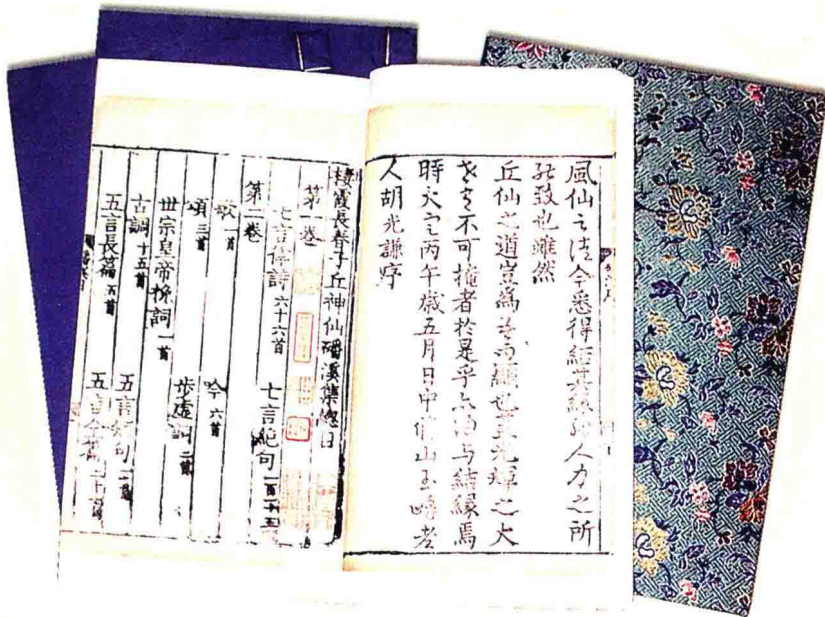 風仙之法今悉得結其緣非人力之所
致也雖然
丘仙之道豈為而顯也光輝之大
不可掩者於是乎与結緣焉
時大定丙午歲五月日中條山玉峰老
人胡光謙序
棲霞長春子丘神仙磻溪集總目
第一卷
七言律詩六十六首 七言絕句一百一十五
第二卷
歌一首 吟六首
頌三首 步虛詞二首
世宗皇帝挽詞一首
古調十五首 五言絕句二首
五言長篇五首 五言